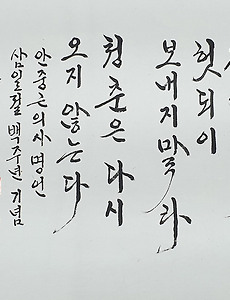 헛되이
보내지 말라
청춘은 다시
오지 않는다
안중근 의사 명언
삼일절 백주년 기념